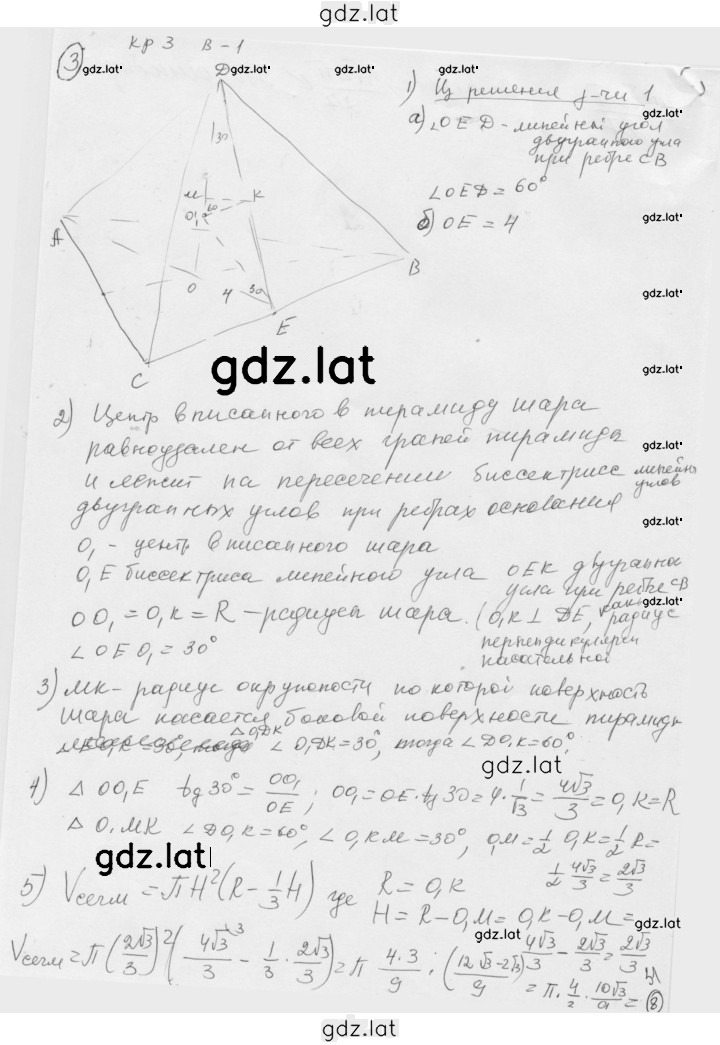 gdz.lat
кр 3 В-1
3
gdz.lat
D
gdz.lat
gdz.lat
1) решения 1
gdz.lat
а) ∠OED - линейный угол
двугранного угла
при ребре CB
gdz.lat
∠OED = 60°
gdz.lat
б) OE = 4
30
M
K
60
O₁
A
B
O
4
30
gdz.lat
E
gdz.lat
gdz.lat
C
2) Центр вписанного в пирамиду шара
равноудален от всех граней пирамиды
gdz.lat
и лежит на пересечении биссектрис линейных
углов
двугранных углов при ребрах основания
gdz.lat
O₁ - центр вписанного шара
O₁E биссектриса линейного угла OEK двугранно
угла при ребре CB
gdz.lat
OO₁ = O₁K = R - радиусы шара. (O₁K ⊥ DE, как радиус
gdz.lat
перпендикулярен
касательной
∠OEO₁ = 30°
3) MK - радиус окружности по которой поверхность
шара касается боковой поверхности пирамиды
△O₁DK
∠O₁DK = 30°, тогда ∠DO₁K = 60°.
gdz.lat
4) △OO₁E tg 30° = OO₁/OE ; OO₁ = OE · tg 30 = 4 · 1/√3 = 4√3/3 = O₁K = R
△O₁MK ∠DO₁K = 60°, ∠O₁KM = 30°, O₁M = 1/2 O₁K = 1/2 R =
gdz.lat
1/2 4√3/3 = 2√3/3
5) Vсегм = πH²(R - 1/3 H) где R = O₁K
H = R - O₁M = O₁K - O₁M =
gdz.lat
4√3/3 - 2√3/3 = 2√3/3
Vсегм = π(2√3/3)²(4√3/3 - 1/3 · 2√3/3) = π 4·3/9 · (12√3-2√3)/9
= π · 4/3 · 10√3/9 =
8
gdz.lat